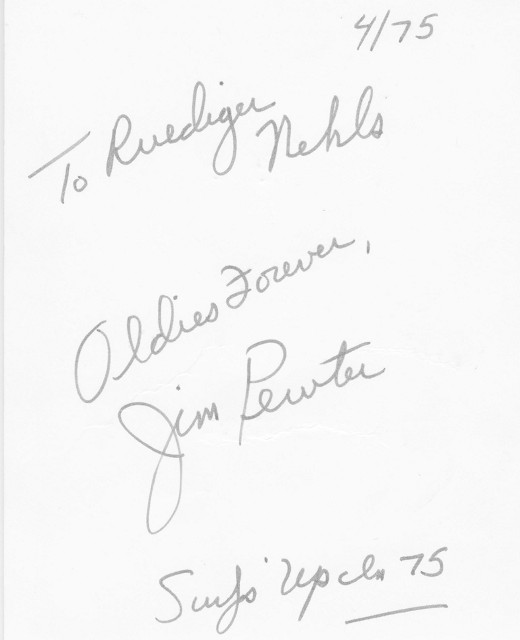 4/75
To Ruediger Nehls
Oldies Forever,
Jim Pewter
Surfs' Up in 75